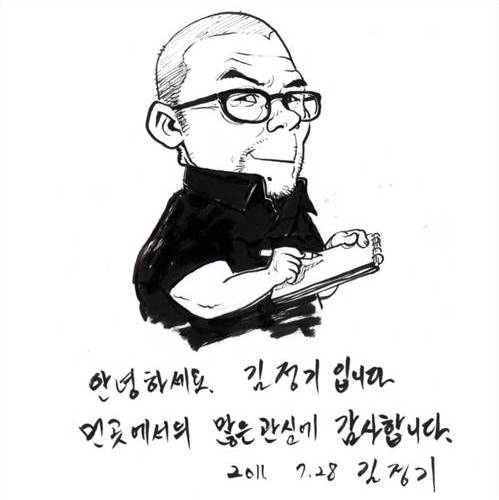 안녕하세요. 김정기입니다
먼곳에서의 많은관심에 감사합니다.
2011 7.28 김정기